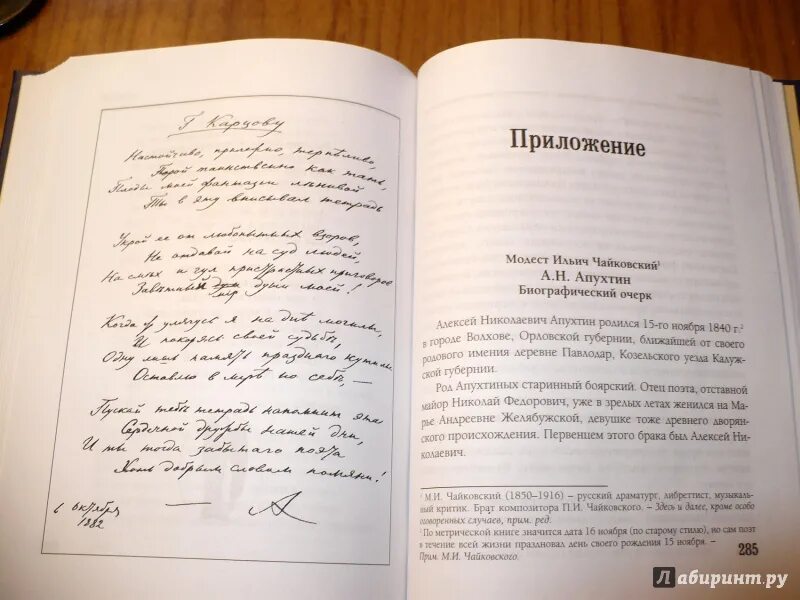 Г Карцову
Настойчиво, прилежно, терпеливо,
Порой таинственно как тать,
Плоды моей фантазии ленивой
Ты в эту вписывал тетрадь
Укрой ее от любопытных взоров,
Не отдавай на суд людей,
На смех и гул пристрастных приговоров
Заветный мир души моей!
Когда улягусь я на дне могилы
И, покорясь своей судьбе,
Одну лишь память праздного кутилы
Оставлю в мире по себе, —
Пускай тебе тетрадь напомнит эта
Сердечной дружбы нашей дни,
И ты тогда забытого поэта
Хоть добрым словом помяни!
6 октября
1882
— А
Приложение
Модест Ильич Чайковский¹
А.Н. Апухтин
Биографический очерк
Алексей Николаевич Апухтин родился 15-го ноября 1840 г.²
в городе Волхове, Орловской губернии, ближайшей от своего
родового имения деревне Павлодар, Козельского уезда Калуж-
ской губернии.
Род Апухтиных старинный боярский. Отец поэта, отставной
майор Николай Федорович, уже в зрелых летах женился на Ма-
рье Андреевне Желябужской, девушке тоже древнего дворян-
ского происхождения. Первенцем этого брака был Алексей Ни-
колаевич.
¹ М.И. Чайковский (1850–1916) – русский драматург, либреттист, музыкаль-
ный критик. Брат композитора П.И. Чайковского. – Здесь и далее, кроме особо
оговоренных случаев, прим. ред.
² По метрической книге значится дата 16 ноября (по старому стилю), но сам поэт
в течение всей жизни праздновал день своего рождения 15 ноября. –
Прим. М.И. Чайковского.
285
Лабиринт.ру